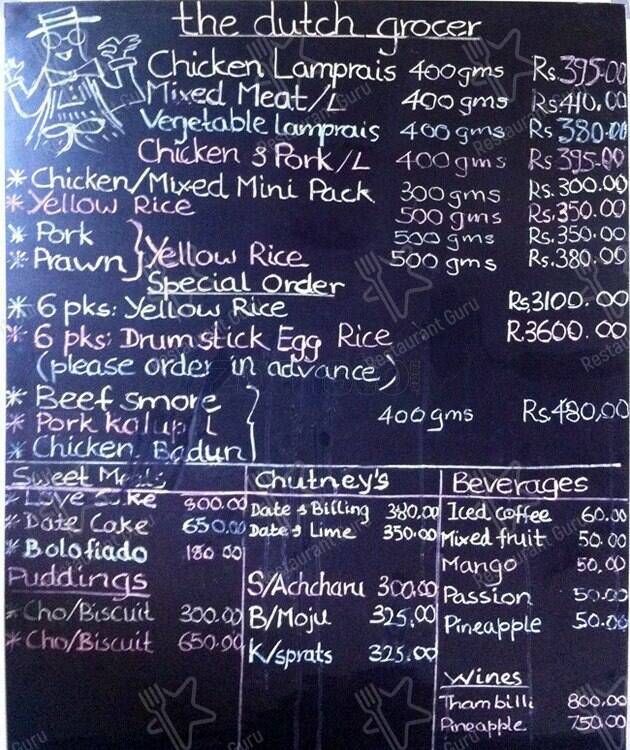 the dutch grocer
Chicken Lamprais 400gms Rs.395.00
Mixed Meat/L 400gms Rs410.00
Vegetable lamprais 400gms Rs 380.00
Chicken & Pork/L 400gms Rs 395.00
* Chicken/Mixed Mini Pack 300gms Rs.300.00
* Yellow Rice 500gms Rs.350.00
* Pork 500gms Rs.350.00
* Prawn } Yellow Rice 500gms Rs.380.00
Special Order
* 6 pks: Yellow Rice Rs,3100.00
* 6 pks: Drumstick Egg Rice R.3600.00
(please order in advance)
* Beef smore
* Pork kalupl 400gms Rs480,00
* Chicken Badun
Sweet
* Love Cake 800.00
* Date Cake 650.00
* Bolofiado 180 00
Puddings
* Cho/Biscuit 300.00
* Cho/Biscuit 650.00
Chutney's
Date & Billing 380,00
Date & Lime 350.00
S/Achcharu 300.00
B/Moju 325.00
K/sprats 325.00
Beverages
Iced coffee 60.00
Mixed fruit 50.00
Mango 50,00
Passion 50.00
Pineapple 50.00
Wines
Thambilli 800,00
Pineapple 750.00
Restaurant Guru